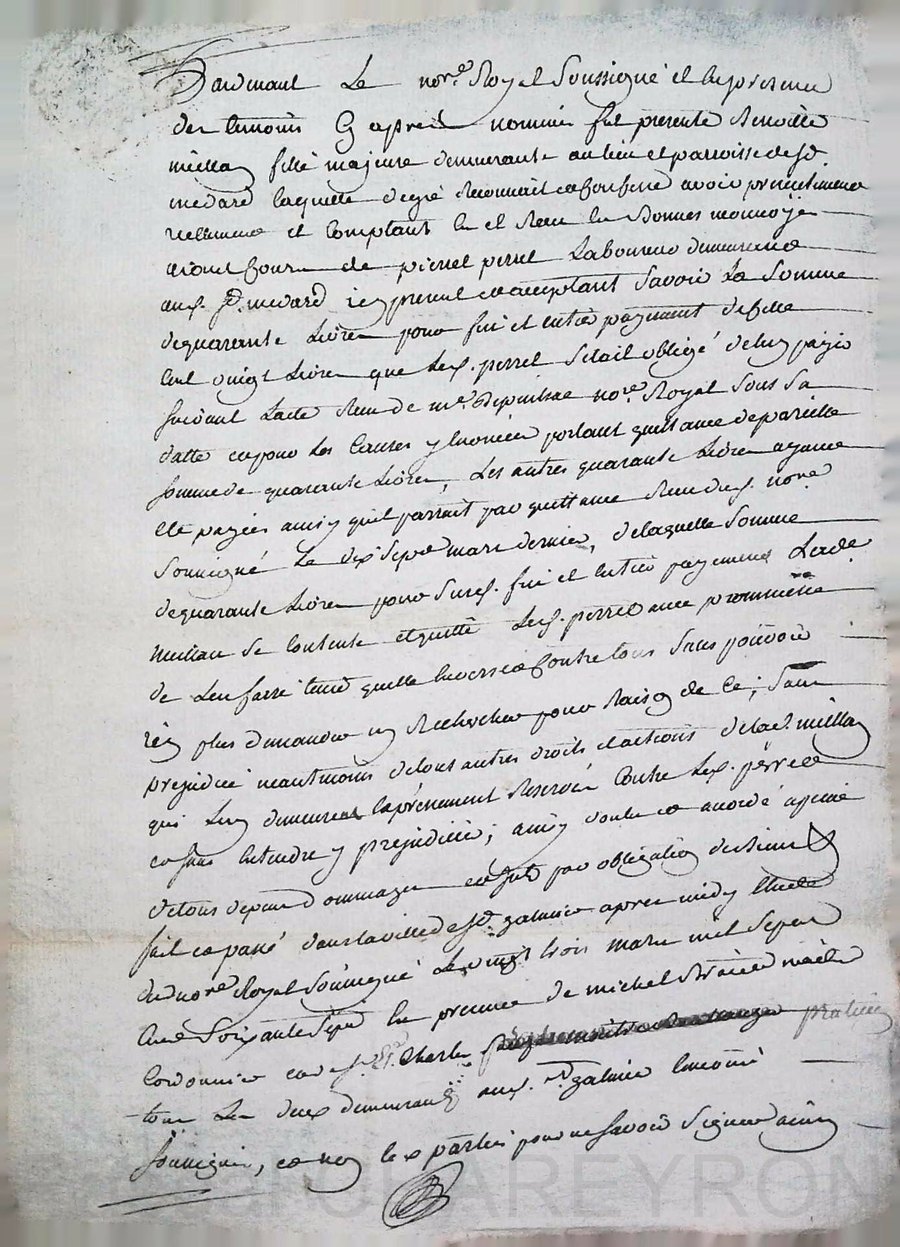 Pardevant Le nore. Royal Soussigné et en presence
des temoins Cy apres nommés fut presente Benoitte
millan fille majeure demeurante au lieu et parroisse de St.
medard laquelle de gré reconnait et confesse avoir presentement
reellement et Comptant eu et Reçu en Bonnes monnoyes
ayant Cours de pierre perret Laboureur demeurant
aud. St. medard icy present et acceptant Savoir La Somme
de quarante Livres pour fin et entier payement de celle
Cent vingt Livres que led. perret S'etait obligé de luy payer
Suivant Lacte Reçu de me. nore. Royal Sous Sa
datte et pour Les Causes y Enoncées portant quittance de pareille
Somme de quarante Livres, Les autres quarante Livres ayant
Eté payées ainsy qu'il parrait par quittance Reçue dud. nore.
Soussigné Le dix Sept mars dernier, de laquelle Somme
de quarante Livres pour Surd. fin et Entier payement Lade.
millan Se Contente et quitte Led. perret avec promesse
de L'en faire tenir quitte Envers et Contre tous Sans pouvoir
rien plus demander ny Rechercher pour Raison de Ce; Sans
prejudice neantmoins de tous autres droits et actions de lad. millan
qui Luy demeurent Expressement Reservés Contre Led. perret
et Sans Entendre y prejudicier; ainsy voulu et accordé a peine
de tous depens dommages et par obligation de biens
fait et passé dans la ville de St. galmier apres midy Etude
du nore. Royal Soussigné Le vingt trois mars mil Sept
Cent Soixante Sept En presence de michel maitre
Cordonnier et de Sr. Charles praticien
tous Les deux demeurants aud. St. galmier Temoins
Soussignés, et non les parties pour ne Savoir Signer ainsy
AREYRON